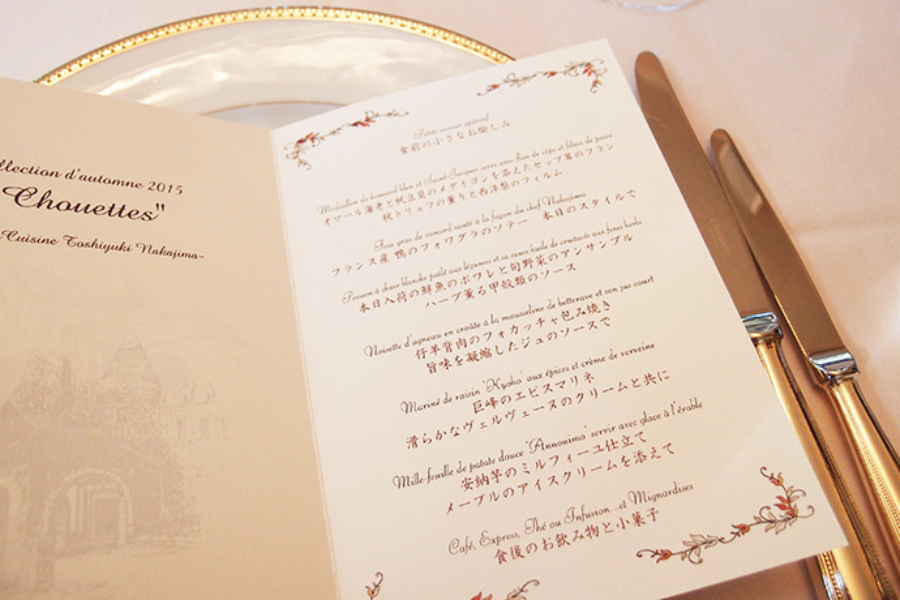 llection d'automne 2015
Chouettes"
Cuisine Toshiyuki Nakajima-
食前の小さなお愉しみ
Médaillon de homard bleu et Saint-Jacques servi avec flan de cèpe et filmes de poire
オマール海老と帆立貝のメダイヨンを添えたセップ茸のフラン
秋トリュフの薫りと西洋梨のフィルム
Foie gras de canard sauté à la façon du chef Nakajima
フランス産 鴨のフォワグラのソテー 本日のスタイルで
Poisson à chair blanche poêlé aux légumes et sa sauce huile de crustacés aux fines herbs
本日入荷の鮮魚のポワレと旬野菜のアンサンブル
ハーブ薫る甲殻類のソース
Noisette d'agneau en croûte à la mousseline de betterave et son jus court
仔羊背肉のフォカッチャ包み焼き
旨味を凝縮したジュのソースで
Mariné de raisin 'Kyoho' aux épices et crème de verveine
巨峰のエピスマリネ
滑らかなヴェルヴェーヌのクリームと共に
Mille-feuille de patate douce 'Annouimo' servir avec glace à l'érable
安納芋のミルフィーユ仕立て
メープルのアイスクリームを添えて
Café, Express, Thé ou Infusion...et Mignardises
食後のお飲み物と小菓子